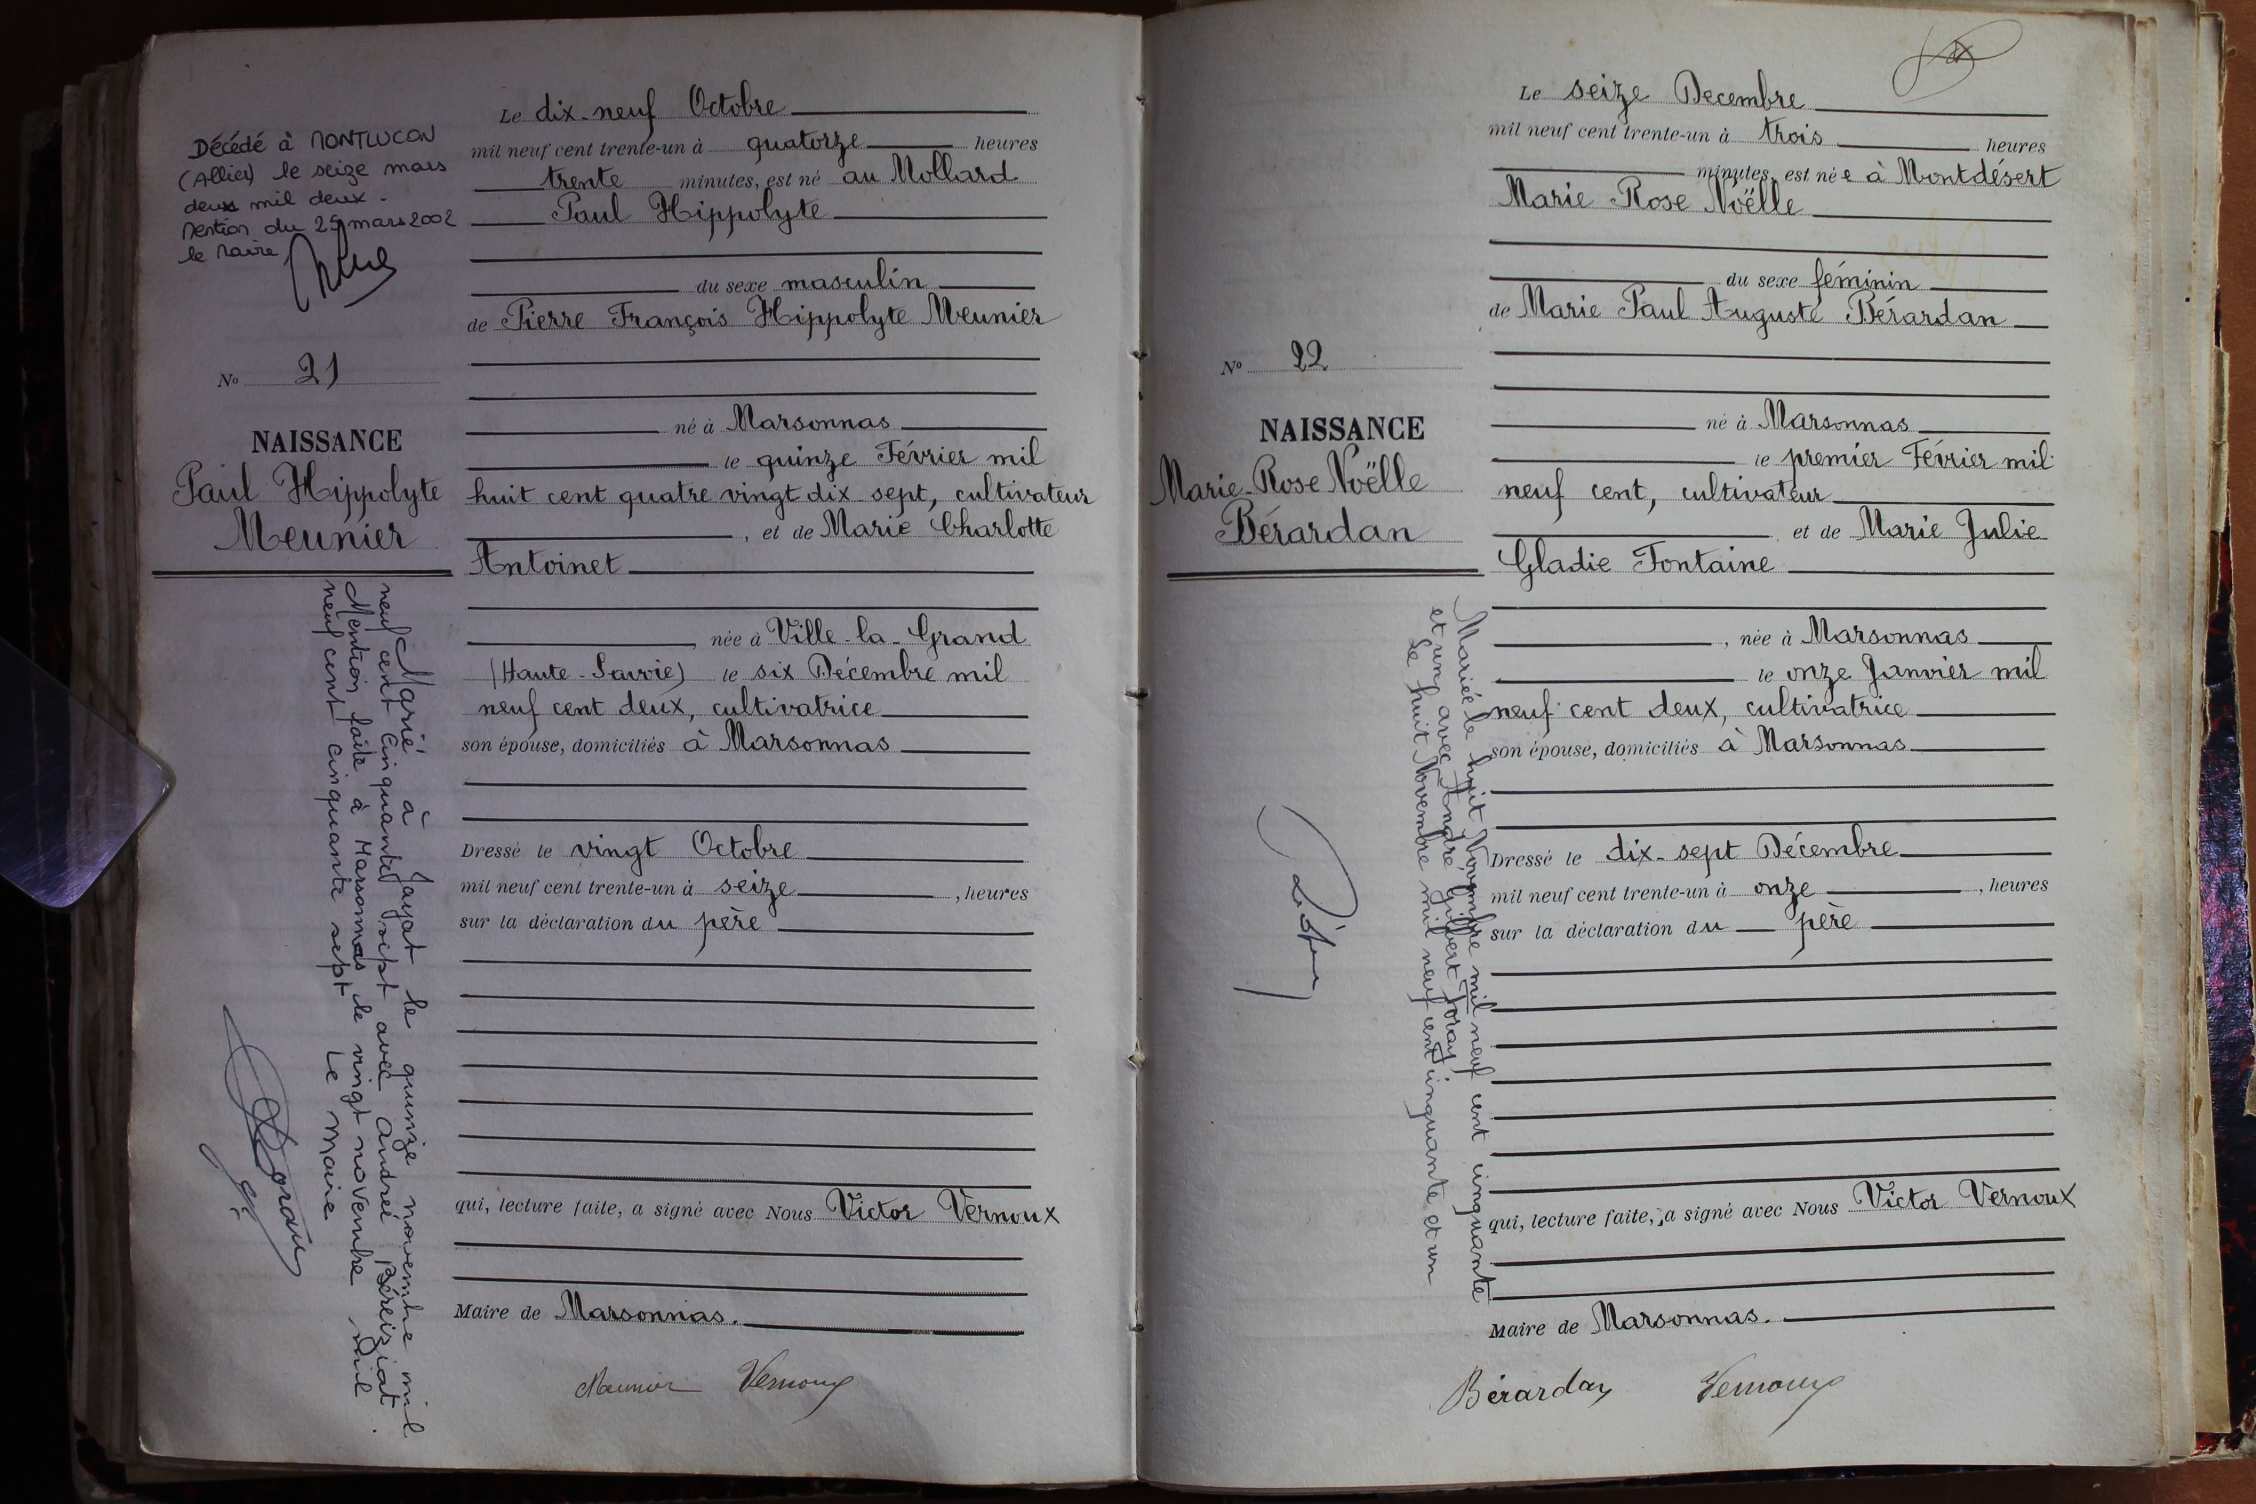 Décédé à MONTLUCON
(Allier) le seize mars
deux mil deux.
Mention du 25 mars 2002
le Maire
No 21
NAISSANCE
Paul Hippolyte
Meunier
Marié à Jayat le quinze novembre mil
neuf cent cinquante sept avec Andrée Béreiziat.
Mention faite à Marsonnas le vingt novembre mil
neuf cent cinquante sept Le Maire
Le dix-neuf Octobre
mil neuf cent trente-un à quatorze heures
trente minutes, est né au Mollard
Paul Hippolyte
du sexe masculin
de Pierre François Hippolyte Meunier
né à Marsonnas
le quinze Février mil
huit cent quatre vingt dix sept, cultivateur
, et de Marie Charlotte
Antoinet
, née à Ville-la-Grand
(Haute-Savoie) le six Décembre mil
neuf cent deux, cultivatrice
son épouse, domiciliés à Marsonnas
Dressé le vingt Octobre
mil neuf cent trente-un à seize , heures
sur la déclaration du père
qui, lecture faite, a signé avec Nous Victor Vernoux
Maire de Marsonnas.
Meunier Vernoux
No 22
NAISSANCE
Marie-Rose Noëlle
Bérardan
Mariée le huit Novembre mil neuf cent cinquante
et un avec André Gilbert Foray
Le huit Novembre mil neuf cent cinquante et un
Le seize Decembre
mil neuf cent trente-un à trois heures
minutes, est née à Montdésert
Marie Rose Noëlle
du sexe féminin
de Marie Paul Auguste Bérardan
né à Marsonnas
le premier Février mil
neuf cent, cultivateur
et de Marie Julie
Gladie Fontaine
, née à Marsonnas
le onze Janvier mil
neuf cent deux, cultivatrice
son épouse, domiciliés à Marsonnas
Dressé le dix-sept Décembre
mil neuf cent trente-un à onze , heures
sur la déclaration du père
qui, lecture faite, a signé avec Nous Victor Vernoux
Maire de Marsonnas.
Bérardan Vernoux